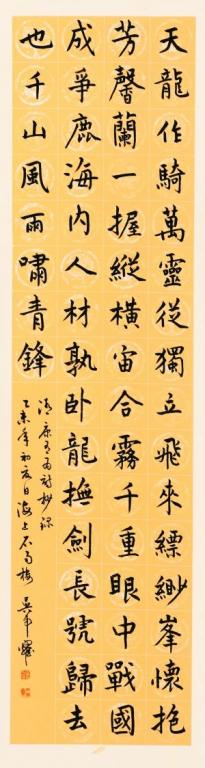 天龍作騎萬靈從獨立飛來縹緲峯懷抱
芳馨蘭一握縱橫宙合霧千重眼中戰國
成爭鹿海內人材孰臥龍撫劍長號歸去
也千山風雨嘯青鋒
清康有为詩抄錄
乙未年初夏日海上樓吳申耀